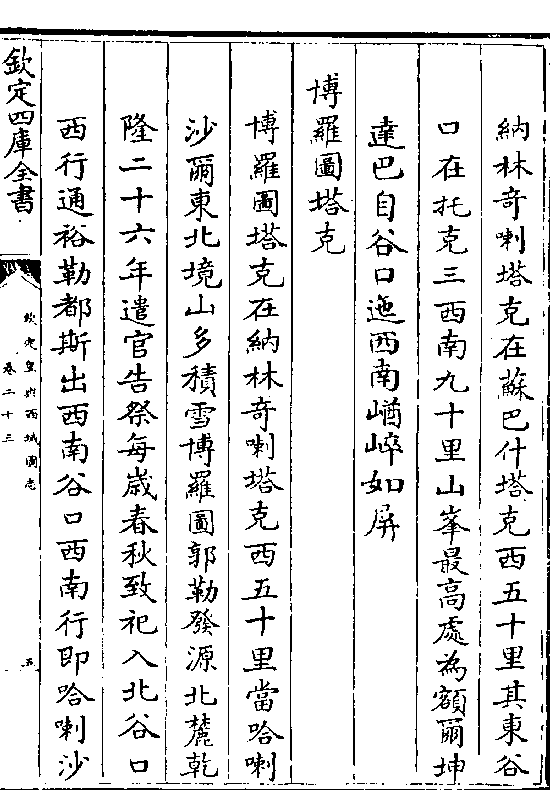 納林奇喇塔克在蘇巴什塔克西五十里其東谷
口在托克三西南九十里山峯最高處為額爾坤
達巴自谷口迤西南崷崪如屏
博羅圖塔克
博羅圖塔克在納林奇喇塔克西五十里當哈喇
沙爾東北境山多積雪博羅圖郭勒發源北麓乾
隆二十六年遣官告祭每歲春秋致祀入北谷口
西行通裕勒都斯出西南谷口西南行即哈喇沙
欽定四庫全書
欽定皇輿西域圖志
卷二十三
五